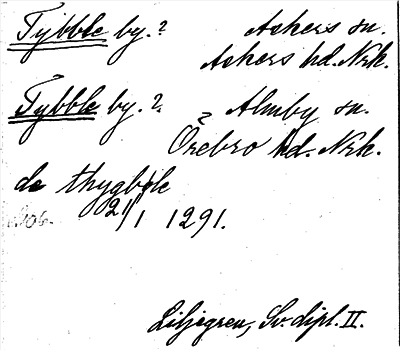 Tybble by.? Askers sn.
Askers hd. Nrk.
Tybble by.? Almby sn.
? Örebro hd. Nrk.
de thygbøle
21/1 1291.
Liljegren, Sv. dipl. II.